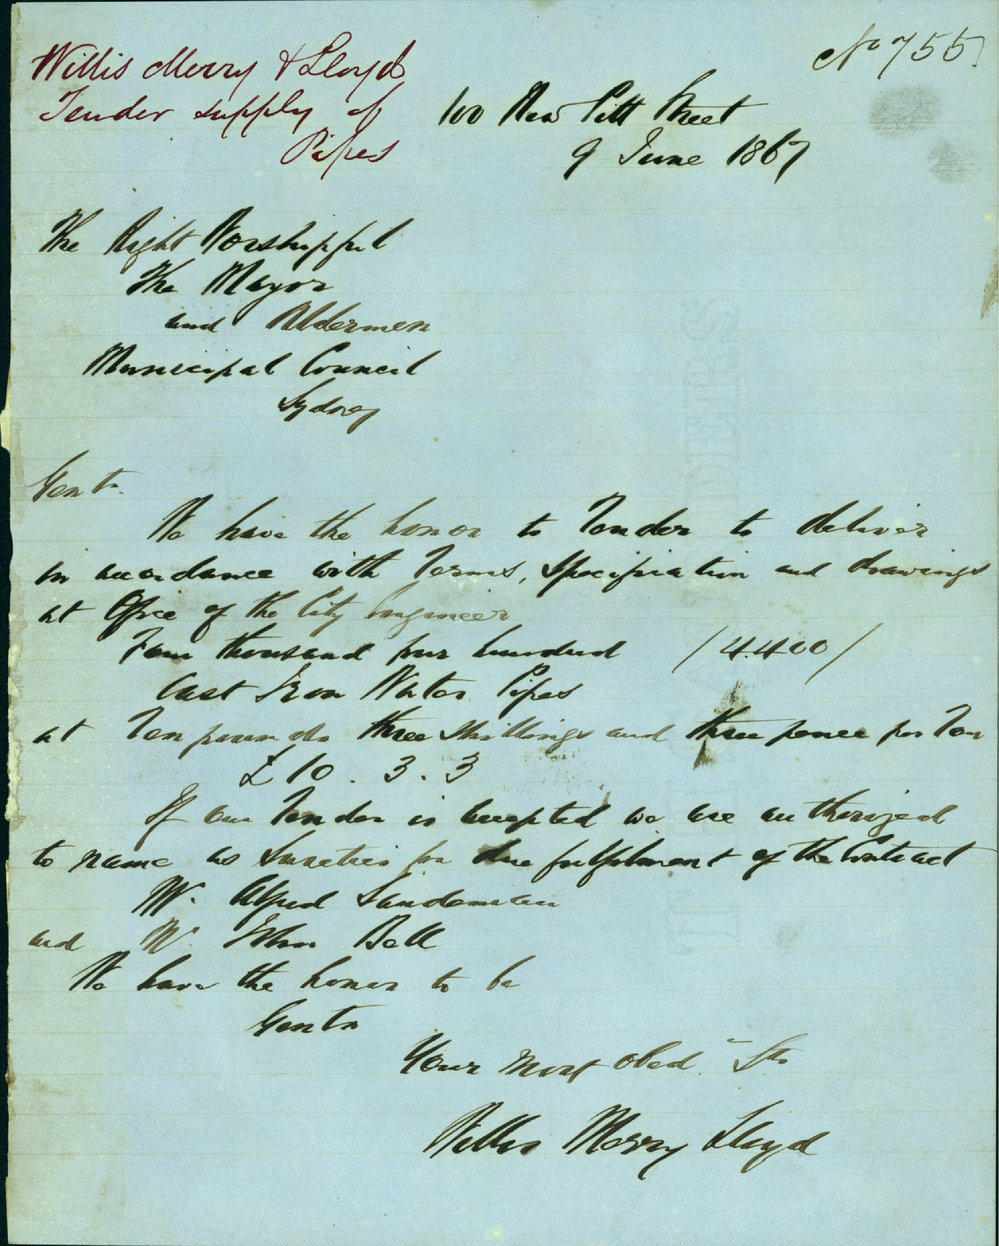 No 755
Willis Merry & Lloyd
Tender supply of
Pipes
100 New Pitt Street
9 June 1867
The Right Worshipful
The Mayor
and Aldermen
Municipal Council
Sydney
Gent.
We have the honor to Tender to deliver
in accordance with Terms, Specification and drawings
at Office of the City Engineer
Four thousand four hundred /4400/
Cast Iron Water Pipes
at Ten pounds three shillings and three pence per Ton
£10.3.3
If our Tender is accepted we are authorized
to name as Sureties for due fulfilment of the Contract
Mr. Alfred Sandeman
and Mr. John Bell
We have the honor to be
Gents
Your most obed. Sts
Willis Merry Lloyd